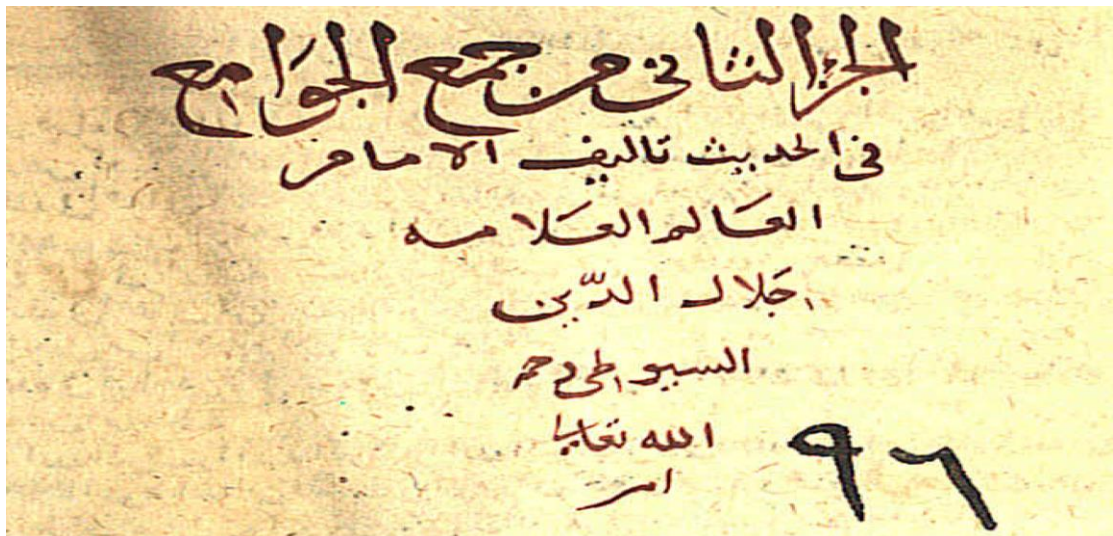 الجزء الثاني من جمع الجوامع
في الحديث تاليف الامام
العالم العلامه
جلال الدين
السيوطي رحمه
الله تعالى
امر
٩٦